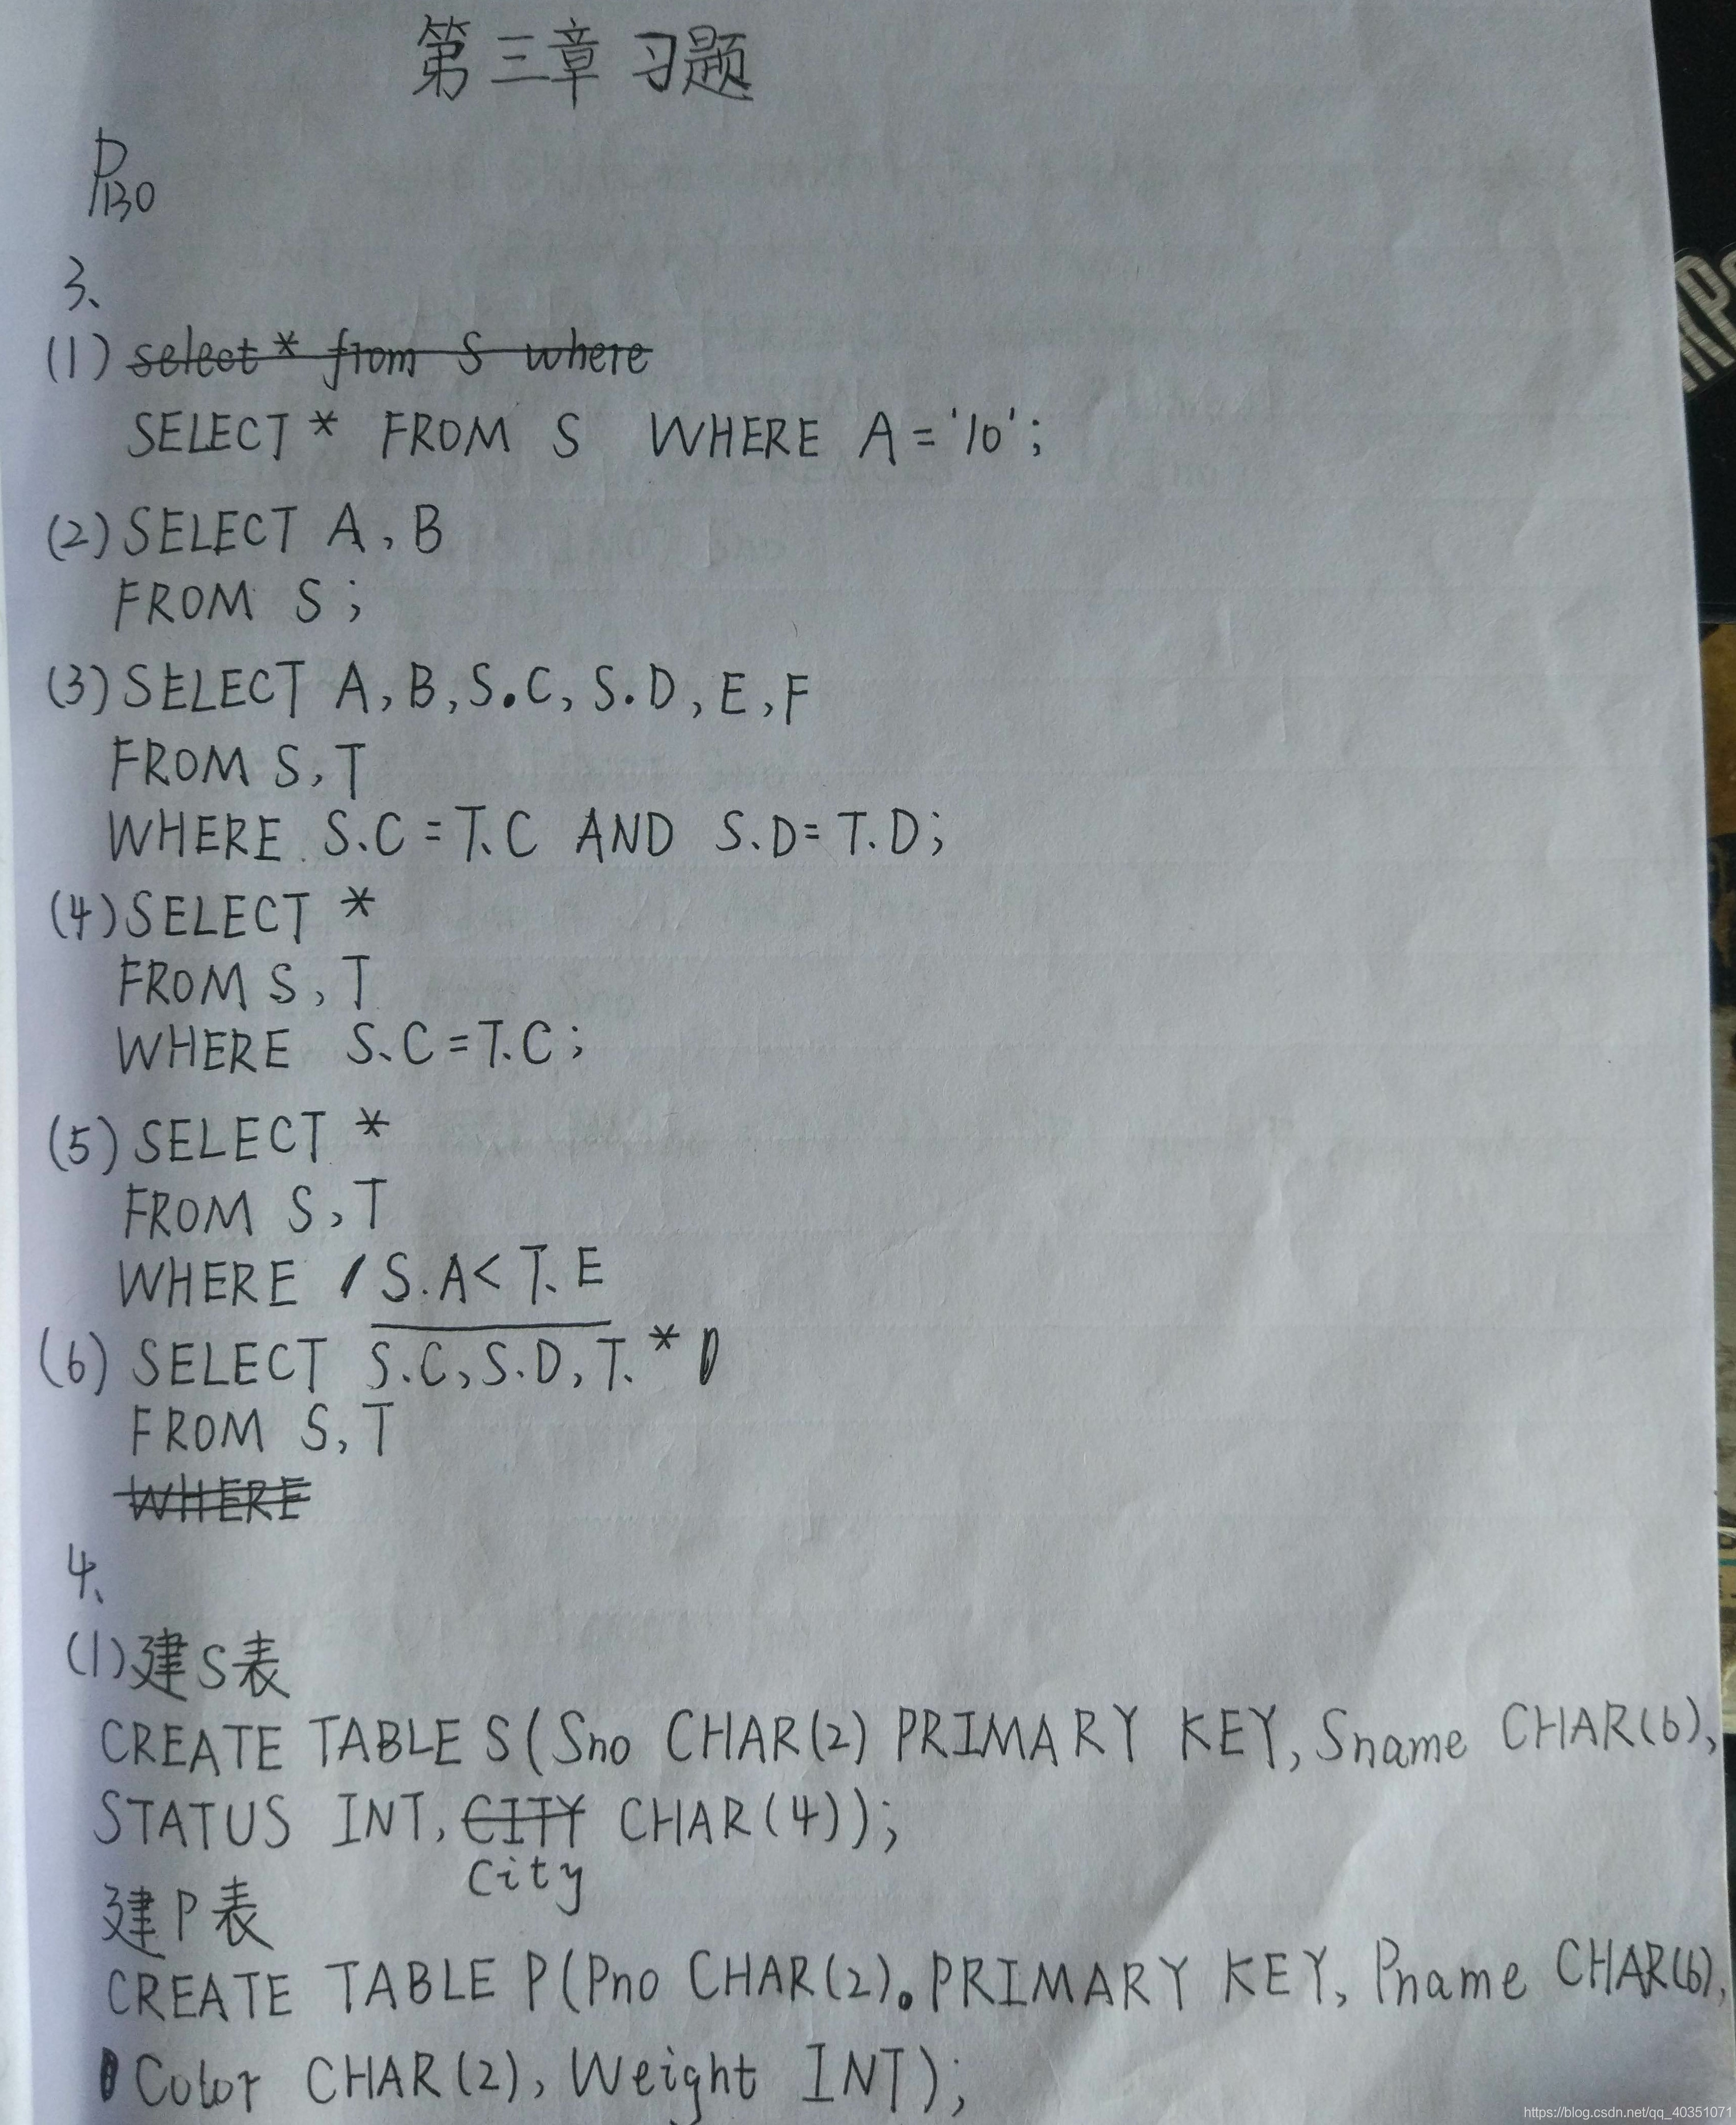 第三章 习题
P130
3、
(1) select * from S where
SELECT * FROM S WHERE A = '10';
(2) SELECT A, B
FROM S;
(3) SELECT A, B, S.C, S.D, E, F
FROM S, T
WHERE S.C = T.C AND S.D = T.D;
(4) SELECT *
FROM S, T
WHERE S.C = T.C;
(5) SELECT *
FROM S, T
WHERE S.A < T.E
(6) SELECT S.C, S.D, T.*
FROM S, T
WHERE
4、
(1) 建S表
CREATE TABLE S(Sno CHAR(2) PRIMARY KEY, Sname CHAR(6),
STATUS INT, CITY CHAR(4));
City
建P表
CREATE TABLE P(Pno CHAR(2). PRIMARY KEY, Pname CHAR(6),
Color CHAR(2), Weight INT);
https://blog.csdn.net/qq_40351071